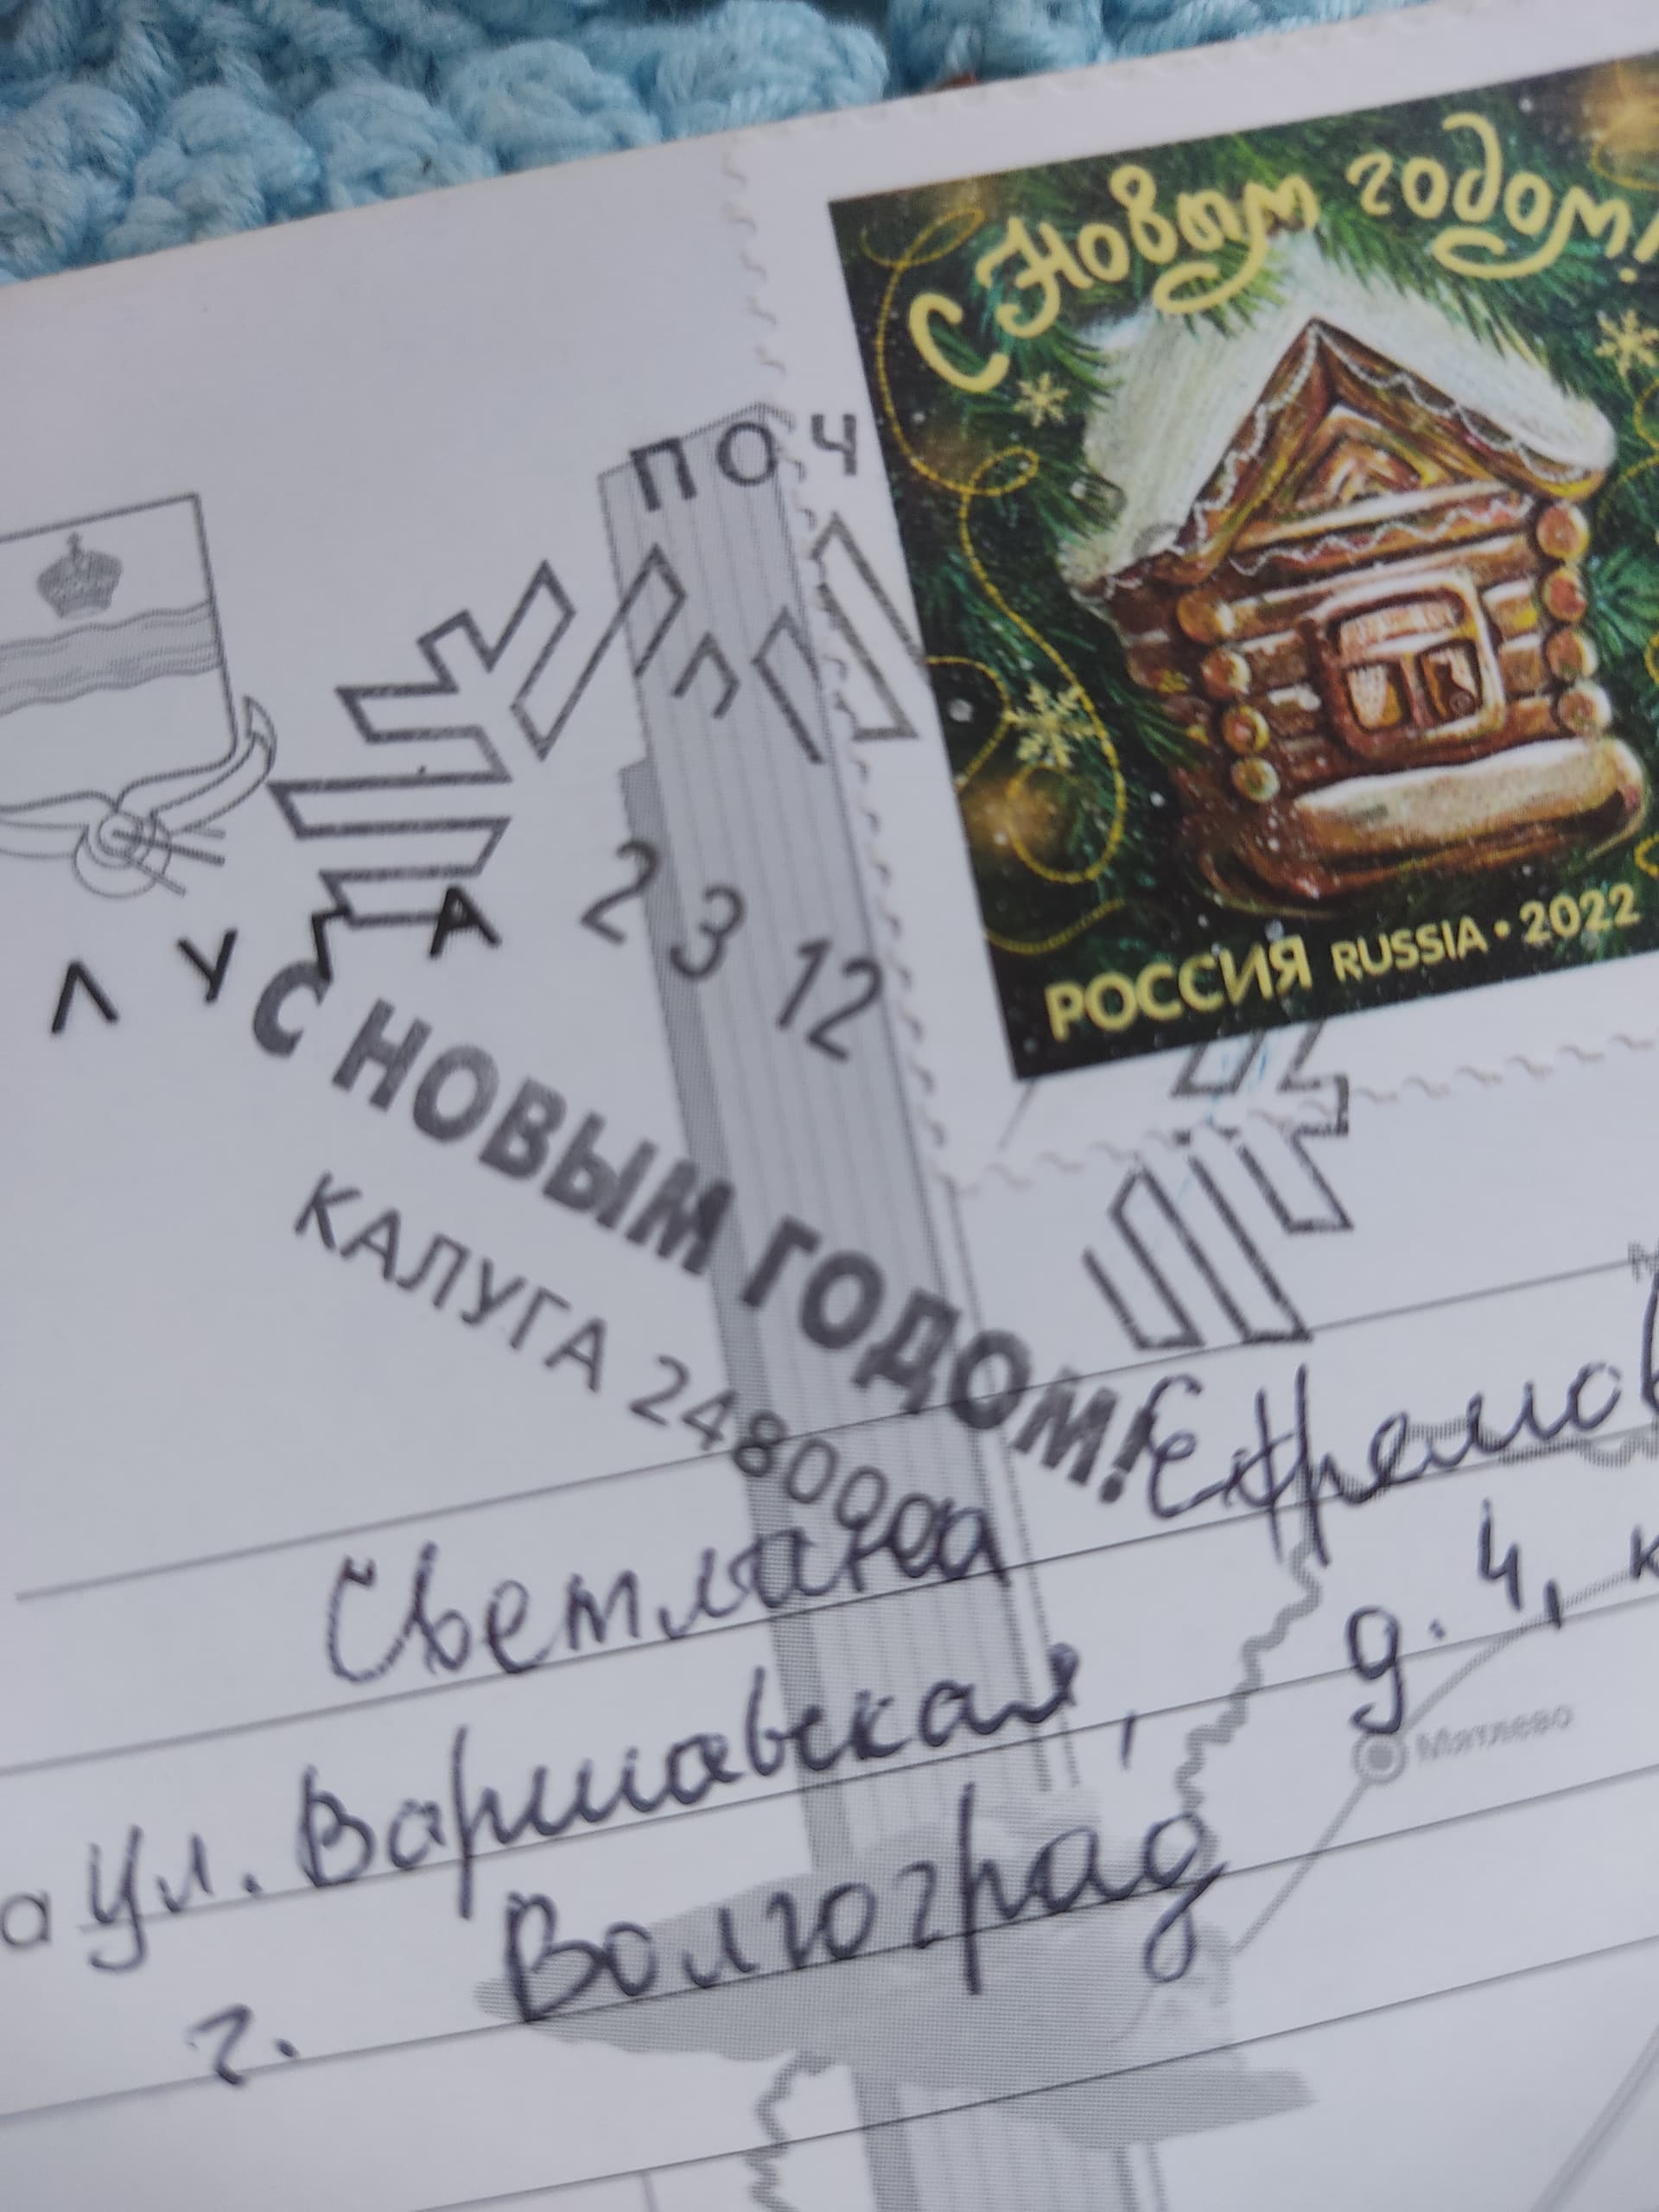 С Новым годом!
РОССИЯ RUSSIA • 2022
ПОЧ
23 12
ЛУГА
С НОВЫМ ГОДОМ!
КАЛУГА 248000
Светлана Ефремов
ул. Варшавская, д. 4, к
Мятлево
г. Волгоград